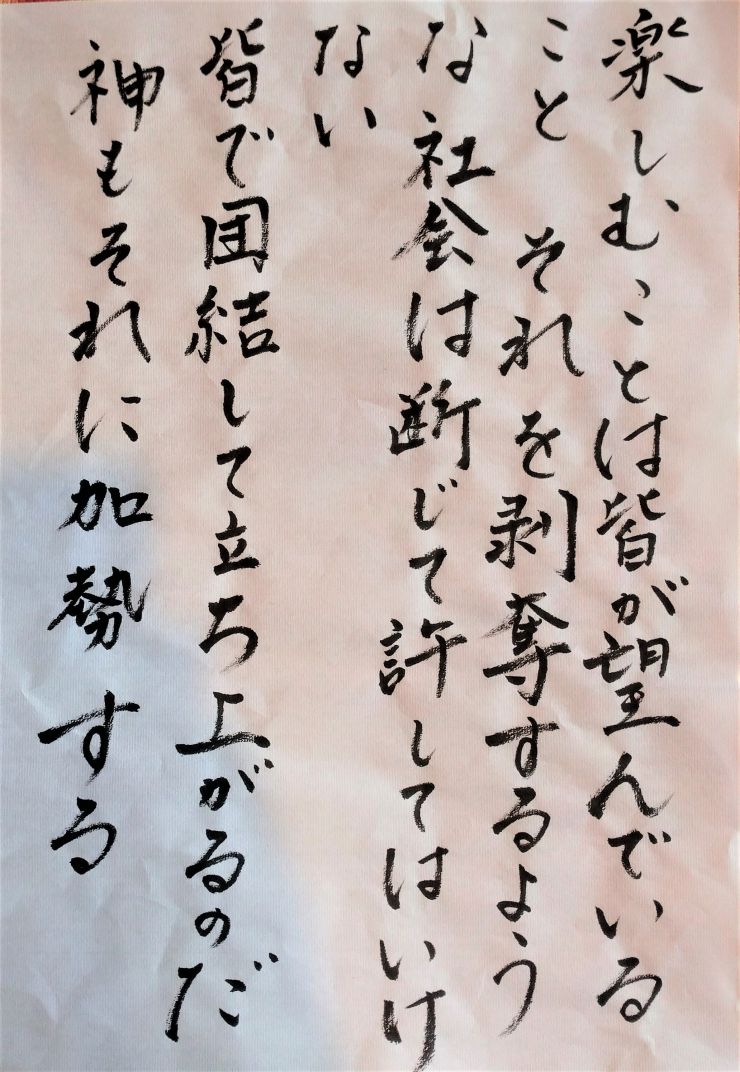 楽しむことは皆が望んでいる
こと それを剥奪するよう
な社会は断じて許してはいけ
ない
皆で団結して立ち上がるのだ
神もそれに加勢する